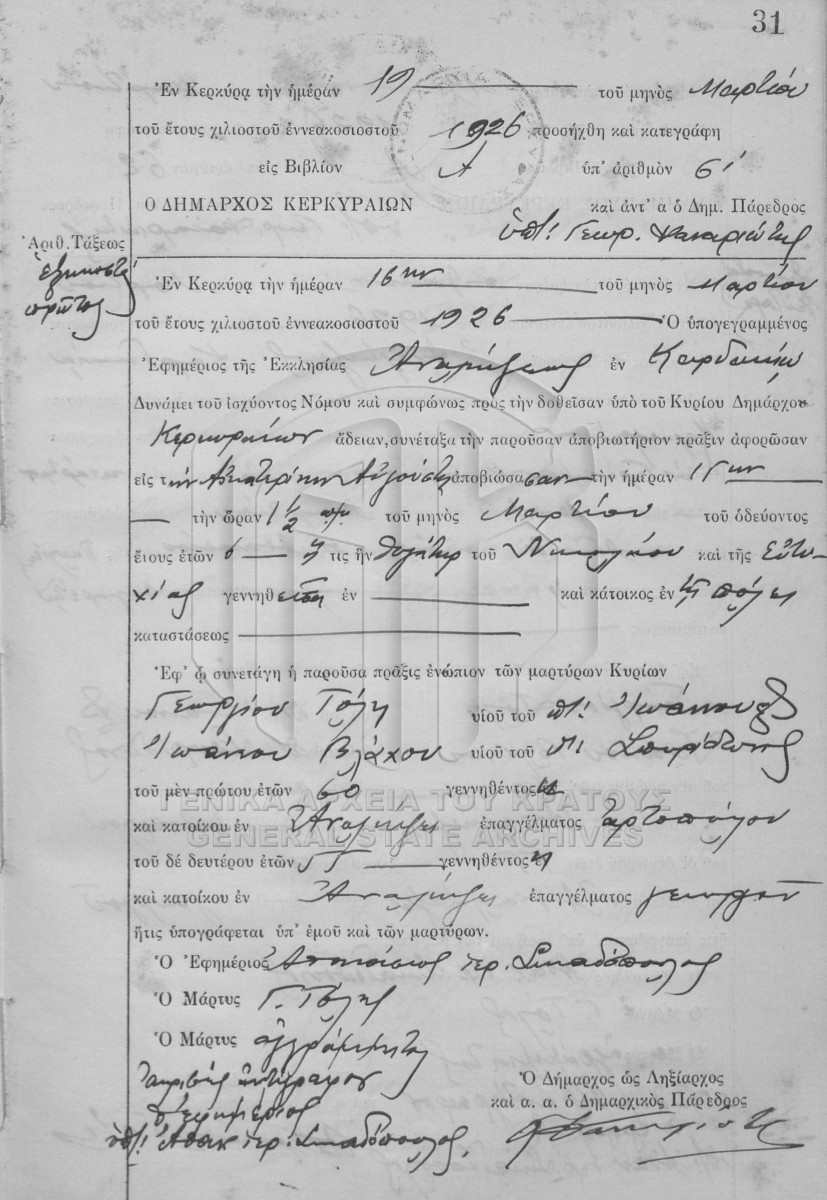 31
Ἐν Κερκύρᾳ τὴν ἡμέραν 19 τοῦ μηνὸς Μαρτίου
τοῦ ἔτους χιλιοστοῦ ἐννεακοσιοστοῦ 1926 προσήχθη καὶ κατεγράφη
εἰς Βιβλίον Α ὑπ' ἀριθμὸν 61
Ο ΔΗΜΑΡΧΟΣ ΚΕΡΚΥΡΑΙΩΝ καὶ ἀντ' α ὁ Δημ. Πάρεδρος
ὑπ: Γεωρ.
Ἀριθ. Τάξεως
ἑξηκοστὴ
πρώτη
Ἐν Κερκύρᾳ τὴν ἡμέραν 16ην τοῦ μηνὸς Μαρτίου
τοῦ ἔτους χιλιοστοῦ ἐννεακοσιοστοῦ 1926 Ὁ ὑπογεγραμμένος
Ἐφημέριος τῆς Ἐκκλησίας Ἀναλήψεως ἐν
Δυνάμει τοῦ ἰσχύοντος Νόμου καὶ συμφώνως πρὸς τὴν δοθεῖσαν ὑπὸ τοῦ Κυρίου Δημάρχου
Κερκυραίων ἄδειαν, συνέταξα τὴν παροῦσαν ἀποβιωτήριον πρᾶξιν ἀφορῶσαν
εἰς τὴν Αἰκατερίνην ἀποβιώσασαν τὴν ἡμέραν 15ην
τὴν ὥραν 1 1/2 τοῦ μηνὸς Μαρτίου τοῦ ὁδεύοντος
ἔτους ἐτῶν 6 ἥ τις ἦν θυγάτηρ τοῦ Νικολάου καὶ τῆς Εὐτυ
χίας γεννηθεῖσα ἐν καὶ κάτοικος ἐν τῇ πόλει
καταστάσεως
Ἐφ' ᾧ συνετάγη ἡ παροῦσα πρᾶξις ἐνώπιον τῶν μαρτύρων Κυρίων
Γεωργίου Γόλη υἱοῦ τοῦ ποτ: Ἰωάννου
Ἰωάννου Βλάχου υἱοῦ τοῦ ποτ: Σπυρίδωνος
τοῦ μὲν πρώτου ἐτῶν 60 γεννηθέντος
ΓΕΝΙΚΑ ΑΡΧΕΙΑ ΤΟΥ ΚΡΑΤΟΥΣ
καὶ κατοίκου ἐν Ἀναλήψει ἐπαγγέλματος ἀρτοπώλου
GENERAL STATE ARCHIVES
τοῦ δέ δευτέρου ἐτῶν 55 γεννηθέντος
καὶ κατοίκου ἐν Ἀναλήψει ἐπαγγέλματος γεωργοῦ
ἥτις ὑπογράφεται ὑπ' ἐμοῦ καὶ τῶν μαρτύρων.
Ὁ Ἐφημέριος Ἀθανάσιος ἱερ.
Ὁ Μάρτυς Γ. Γόλης
Ὁ Μάρτυς ἀγράμματος
ἀκριβὲς ἀντίγραφον
ὁ ἐφημέριος
ὑπ: Ἀθαν. ἱερ.
Ὁ Δήμαρχος ὡς Ληξίαρχος
καὶ α. α. ὁ Δημαρχικὸς Πάρεδρος